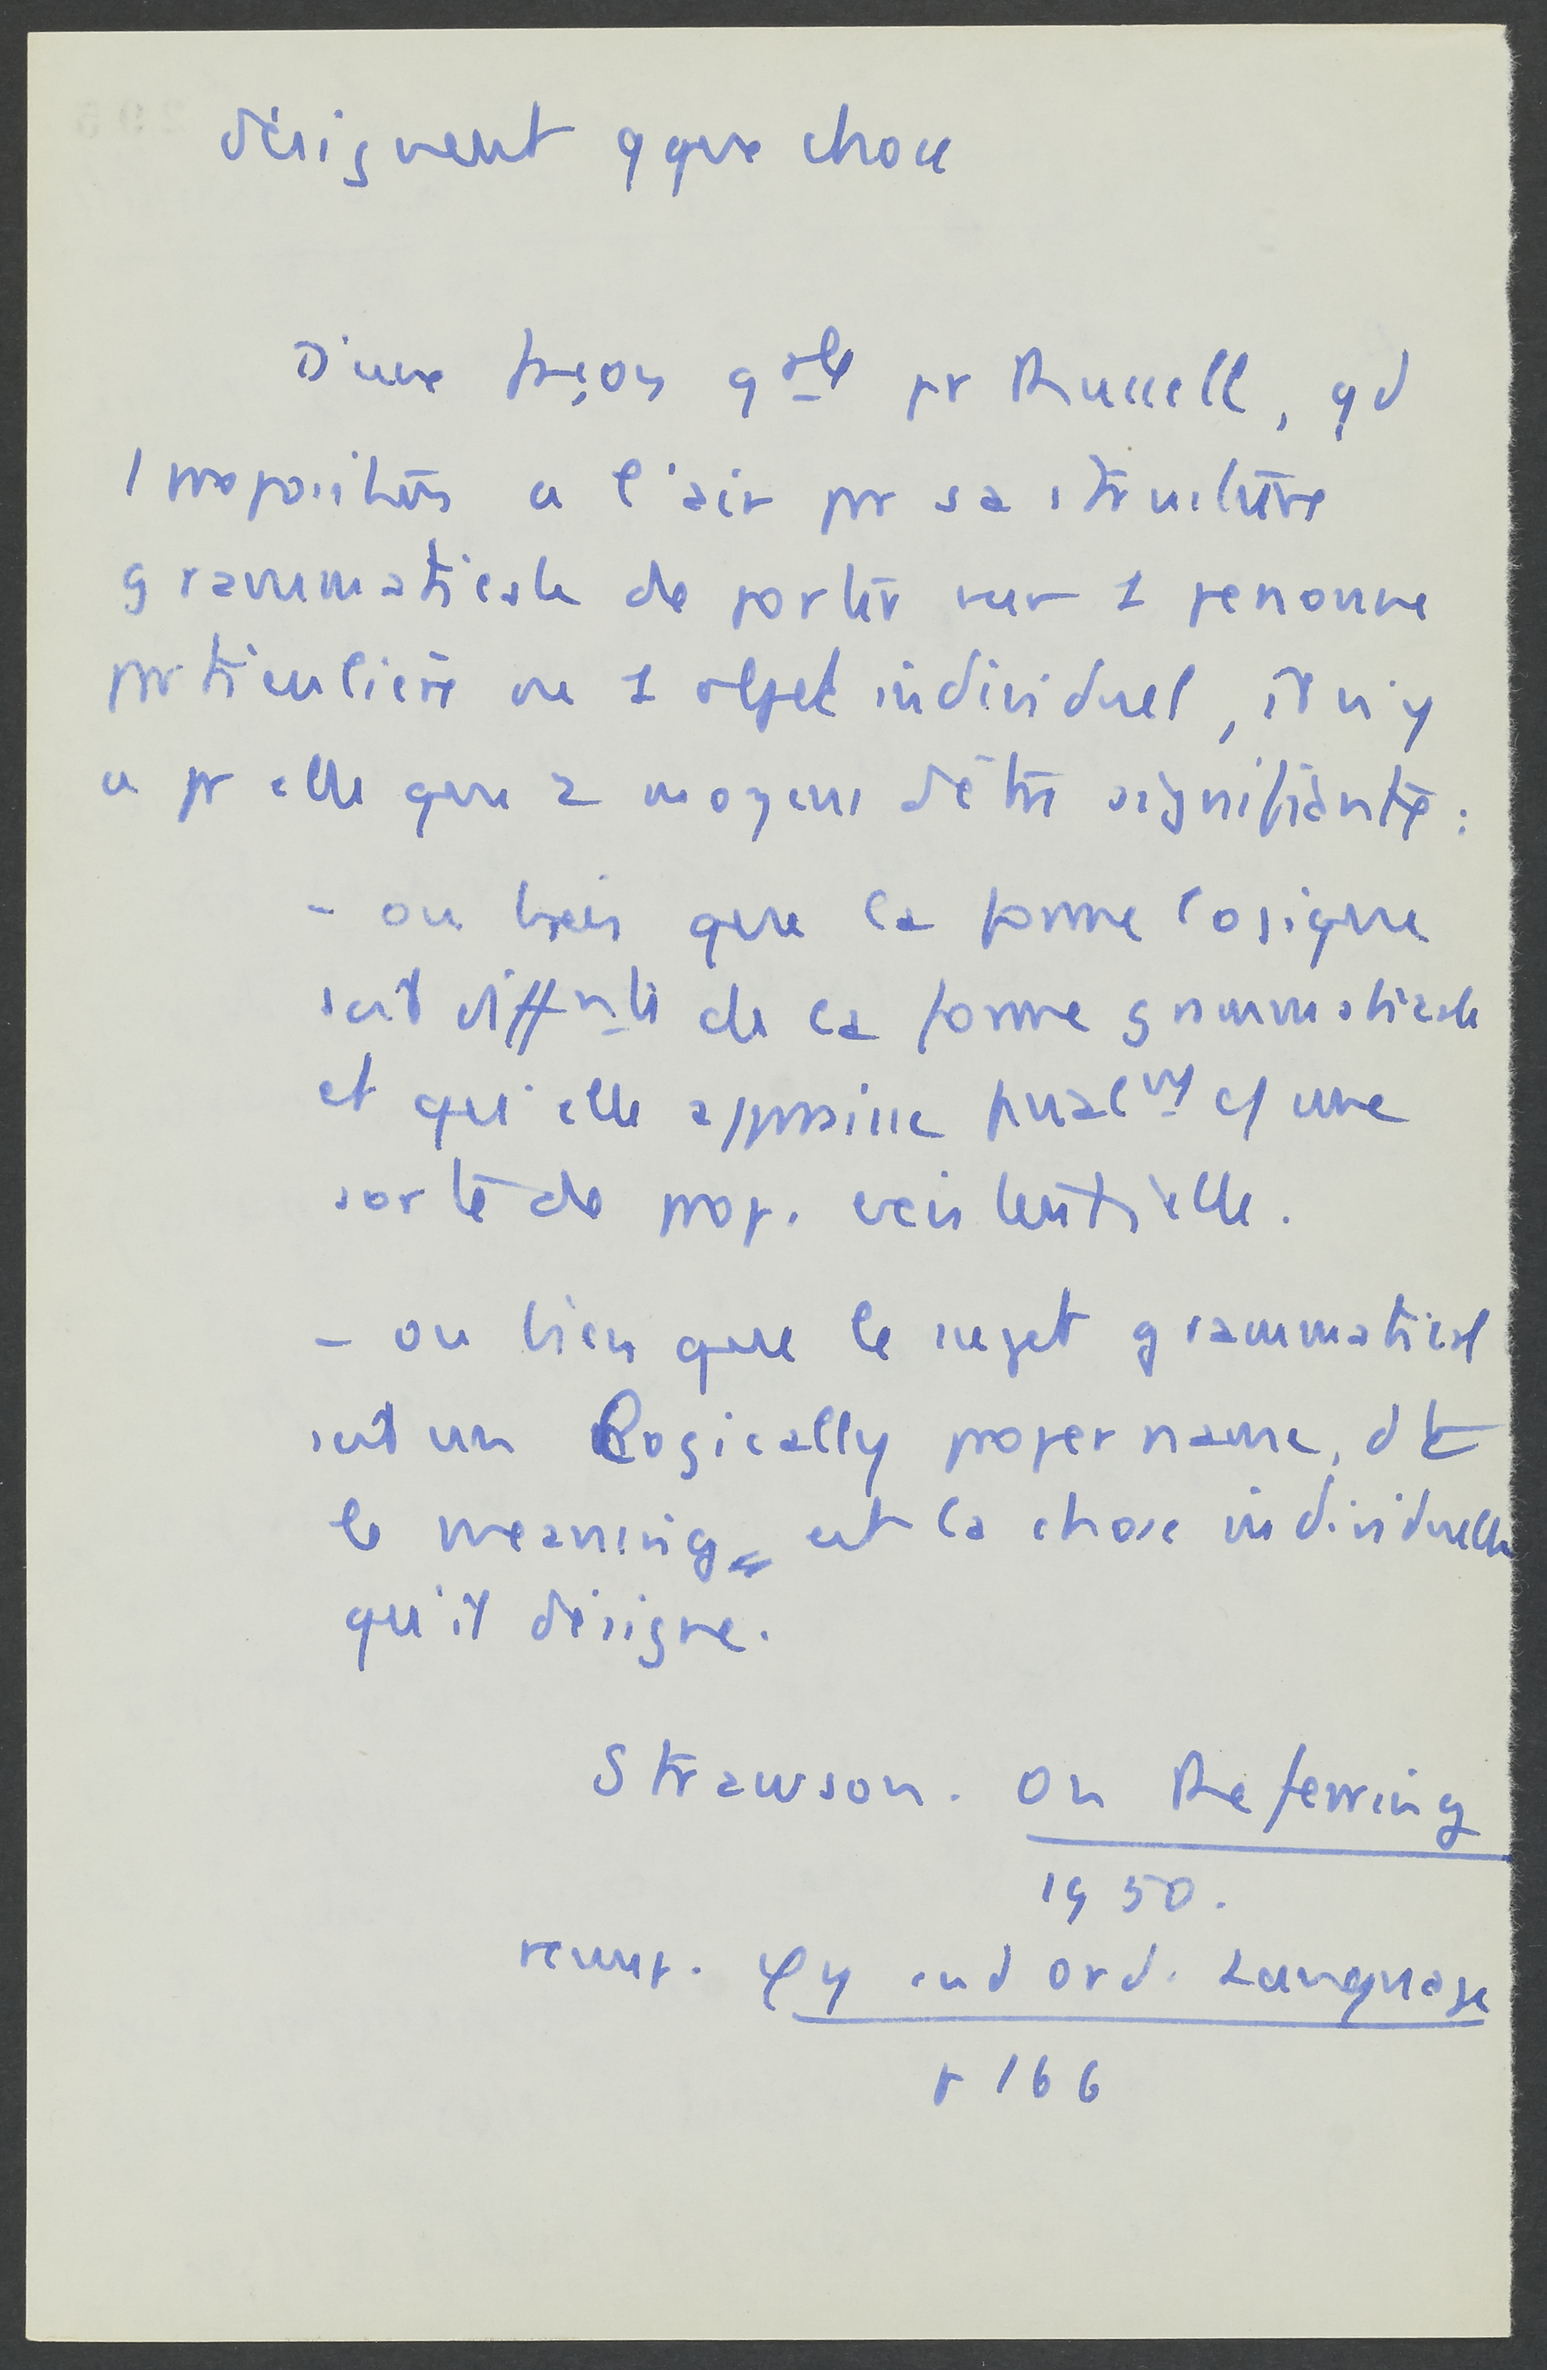 désignent qque chose
D'une façon gale pr Russell, qd
1 proposition a l'air par sa structure
grammaticale de porter sur 1 personne
particulière ou 1 objet individuel, il n'y
a pr elle que 2 moyens d'être signifiante :
- ou bien que la forme logique
soit difft de la forme grammaticale
et qu'elle apparaisse finalt c/ une
sorte de prop. existentielle.
- ou bien que le sujet grammatical
soit un logically proper name, dt
le meaning est la chose individuelle
qu'il désigne.
Strawson. On Referring
1950.
réimp. φy and ord. Language
p 166